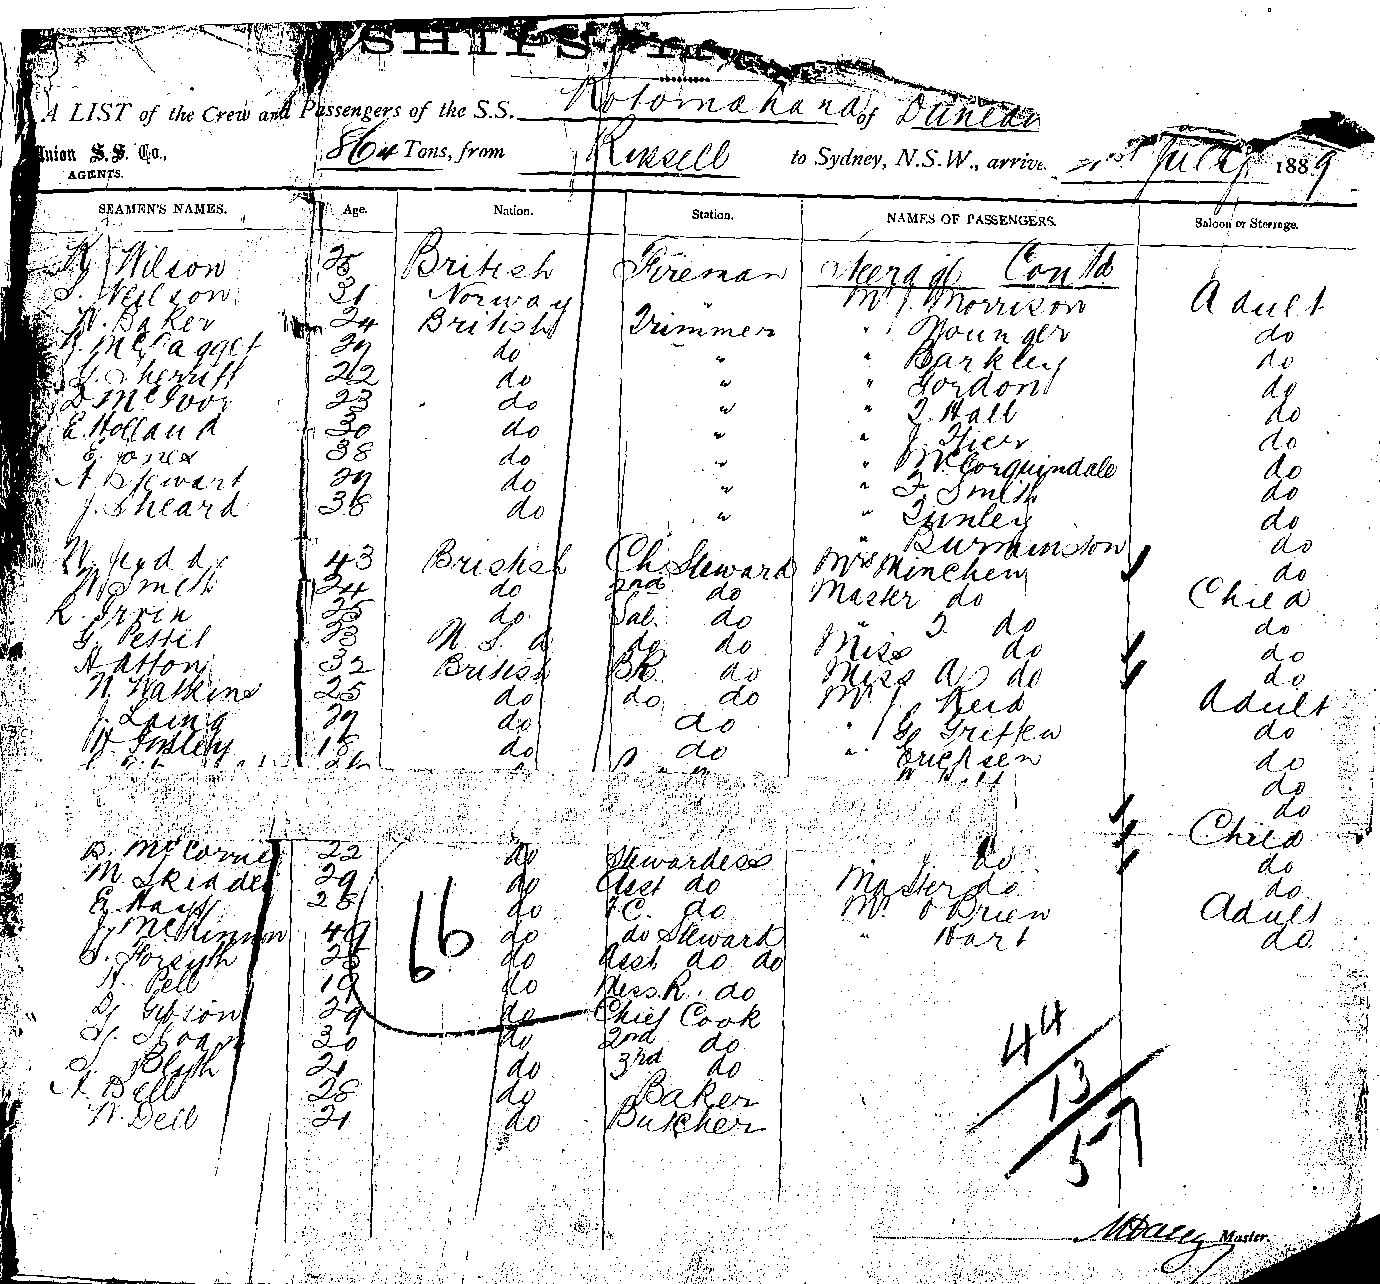 SHIPS
A LIST of the Crew and Passengers of the S.S. Rotomahana of Dunedin
Union S.S. Co., AGENTS. 864 Tons, from Russell to Sydney, N.S.W., arrive July 1889
SEAMEN'S NAMES. Age. Nation. Station. NAMES OF PASSENGERS. Saloon or Steerage.
Wilson 28 British Fireman Steerage Cont'd
Neilson 31 Norway " Mr J. Morrison Adult
W. Baker 24 British Trimmer " Younger do
McTagget 29 do " " Barkley do
G. Sherriff 22 do " " Gordon do
D. McIvor 23 do " " T. Hall do
E. Holland 30 do " " J. do
E. Jones 38 do " " McCorquindale do
A. Stewart 29 do " " F. Smith do
J. Sheard 38 do " " Tunley do
" Burminston do
W. Judd 43 British Ch. Steward Mrs Minchen do
W. Smith 24 do 2nd do Master do Child
R. Irvin 25 do Sal. do " T. do do
G. Pettit 23 do do Miss do do
Hatton 32 British BR. do Miss A do do
W. Watkins 25 do do do Mr J. Reid Adult
J. Laing 29 do do " G. do
18 do do " Ericksen do
do
do
Child
B. McCorne 22 do Stewardess " J. do do
M. Skidde 29 do Asst do Master do do
E. Hays 28 do F.C. do Mr O Brien Adult
J. McKinnon 49 do do Steward " Hart do
Forsyth 25 do Asst do do
W. Pell 19 do MessR. do
Gibson 29 do Chief Cook
Sloan 30 do 2nd do
Blyth 21 do 3rd do
A. Bell 28 do Baker
W. Dell 21 do Butcher
66
44
13
57
Master.